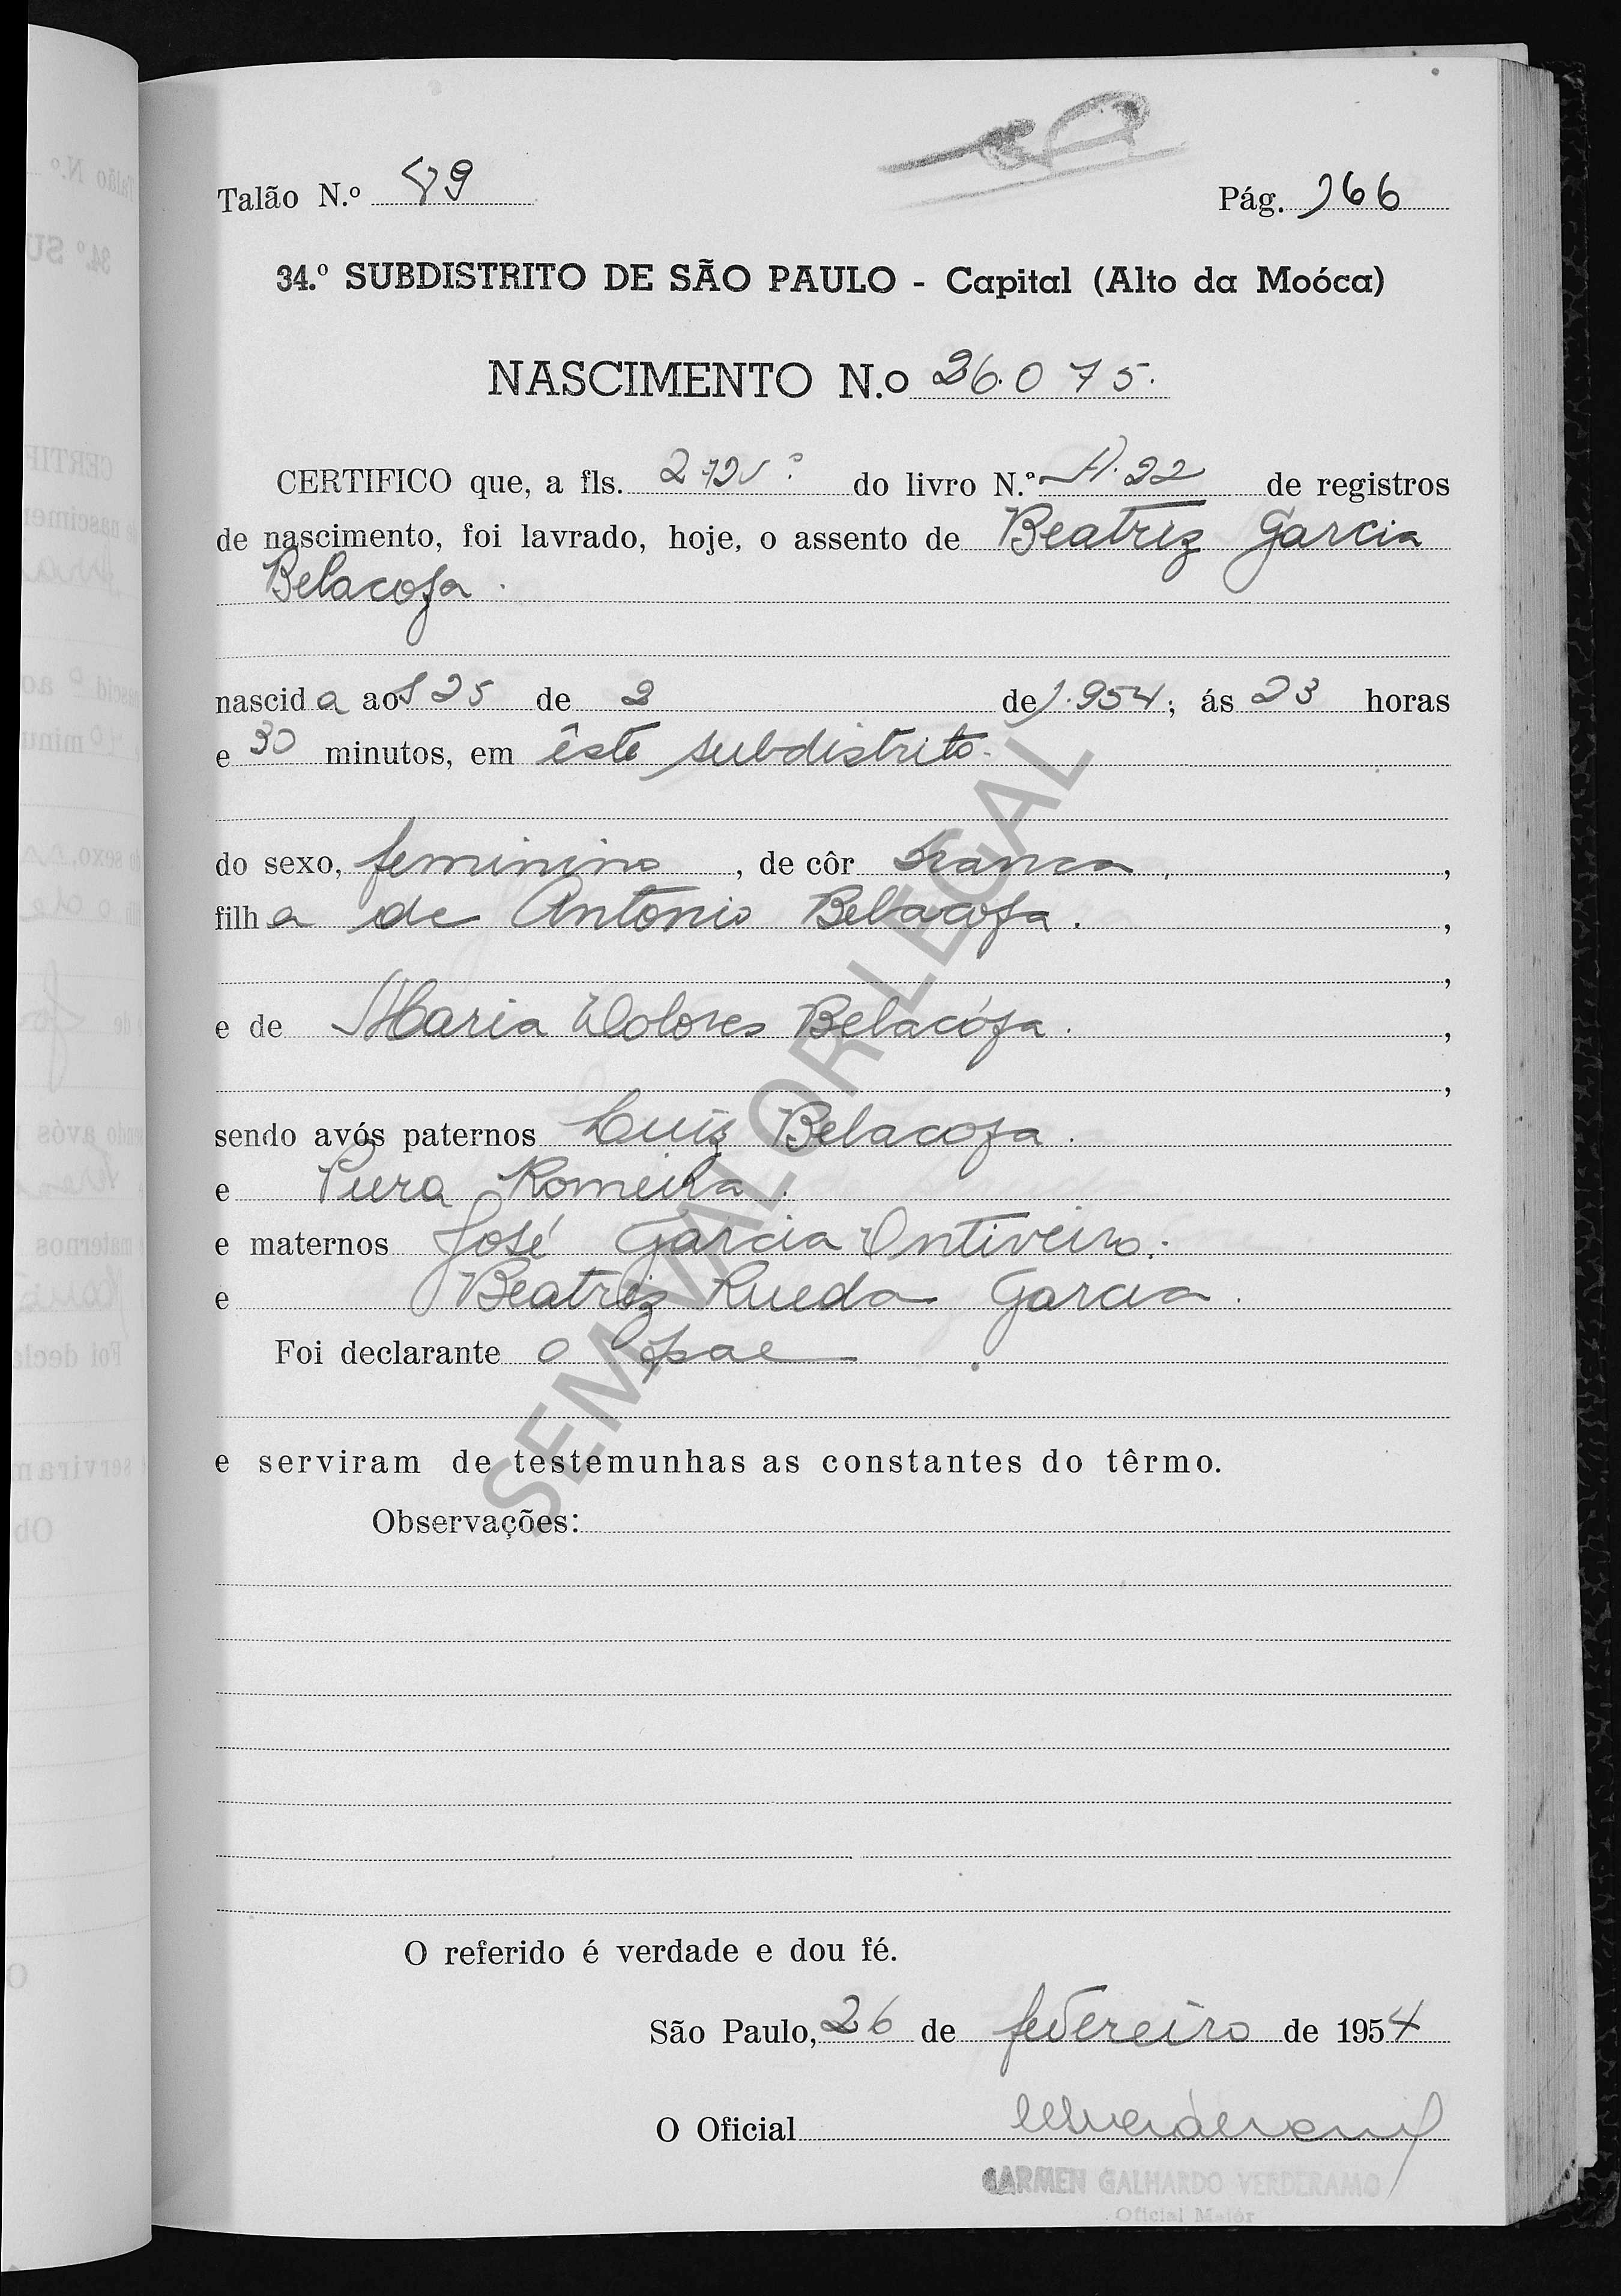 Talão N.º 89 Pág. 166
34.º SUBDISTRITO DE SÃO PAULO - Capital (Alto da Moóca)
NASCIMENTO N.o 26.075.
CERTIFICO que, a fls. 272vº do livro N.º A.22 de registros
de nascimento, foi lavrado, hoje, o assento de Beatriz Garcia
Belacosa.
nascida aos 25 de 2 de 1.954; ás 23 horas
e 30 minutos, em êste subdistrito.
do sexo, feminino, de côr branca,
filha de Antonio Belacosa.,
,
e de Maria Dolores Belacósa.,
,
sendo avós paternos Luiz Belacosa.
e Pura Romeira.
e maternos José Garcia Ontiveiro.
e Beatriz Rueda Garcia.
Foi declarante o pae
e serviram de testemunhas as constantes do têrmo.
Observações:
O referido é verdade e dou fé.
São Paulo, 26 de fevereiro de 1954
O Oficial
CARMEN GALHARDO VERDERAMO
Oficial Maior
SEM VALOR LEGAL